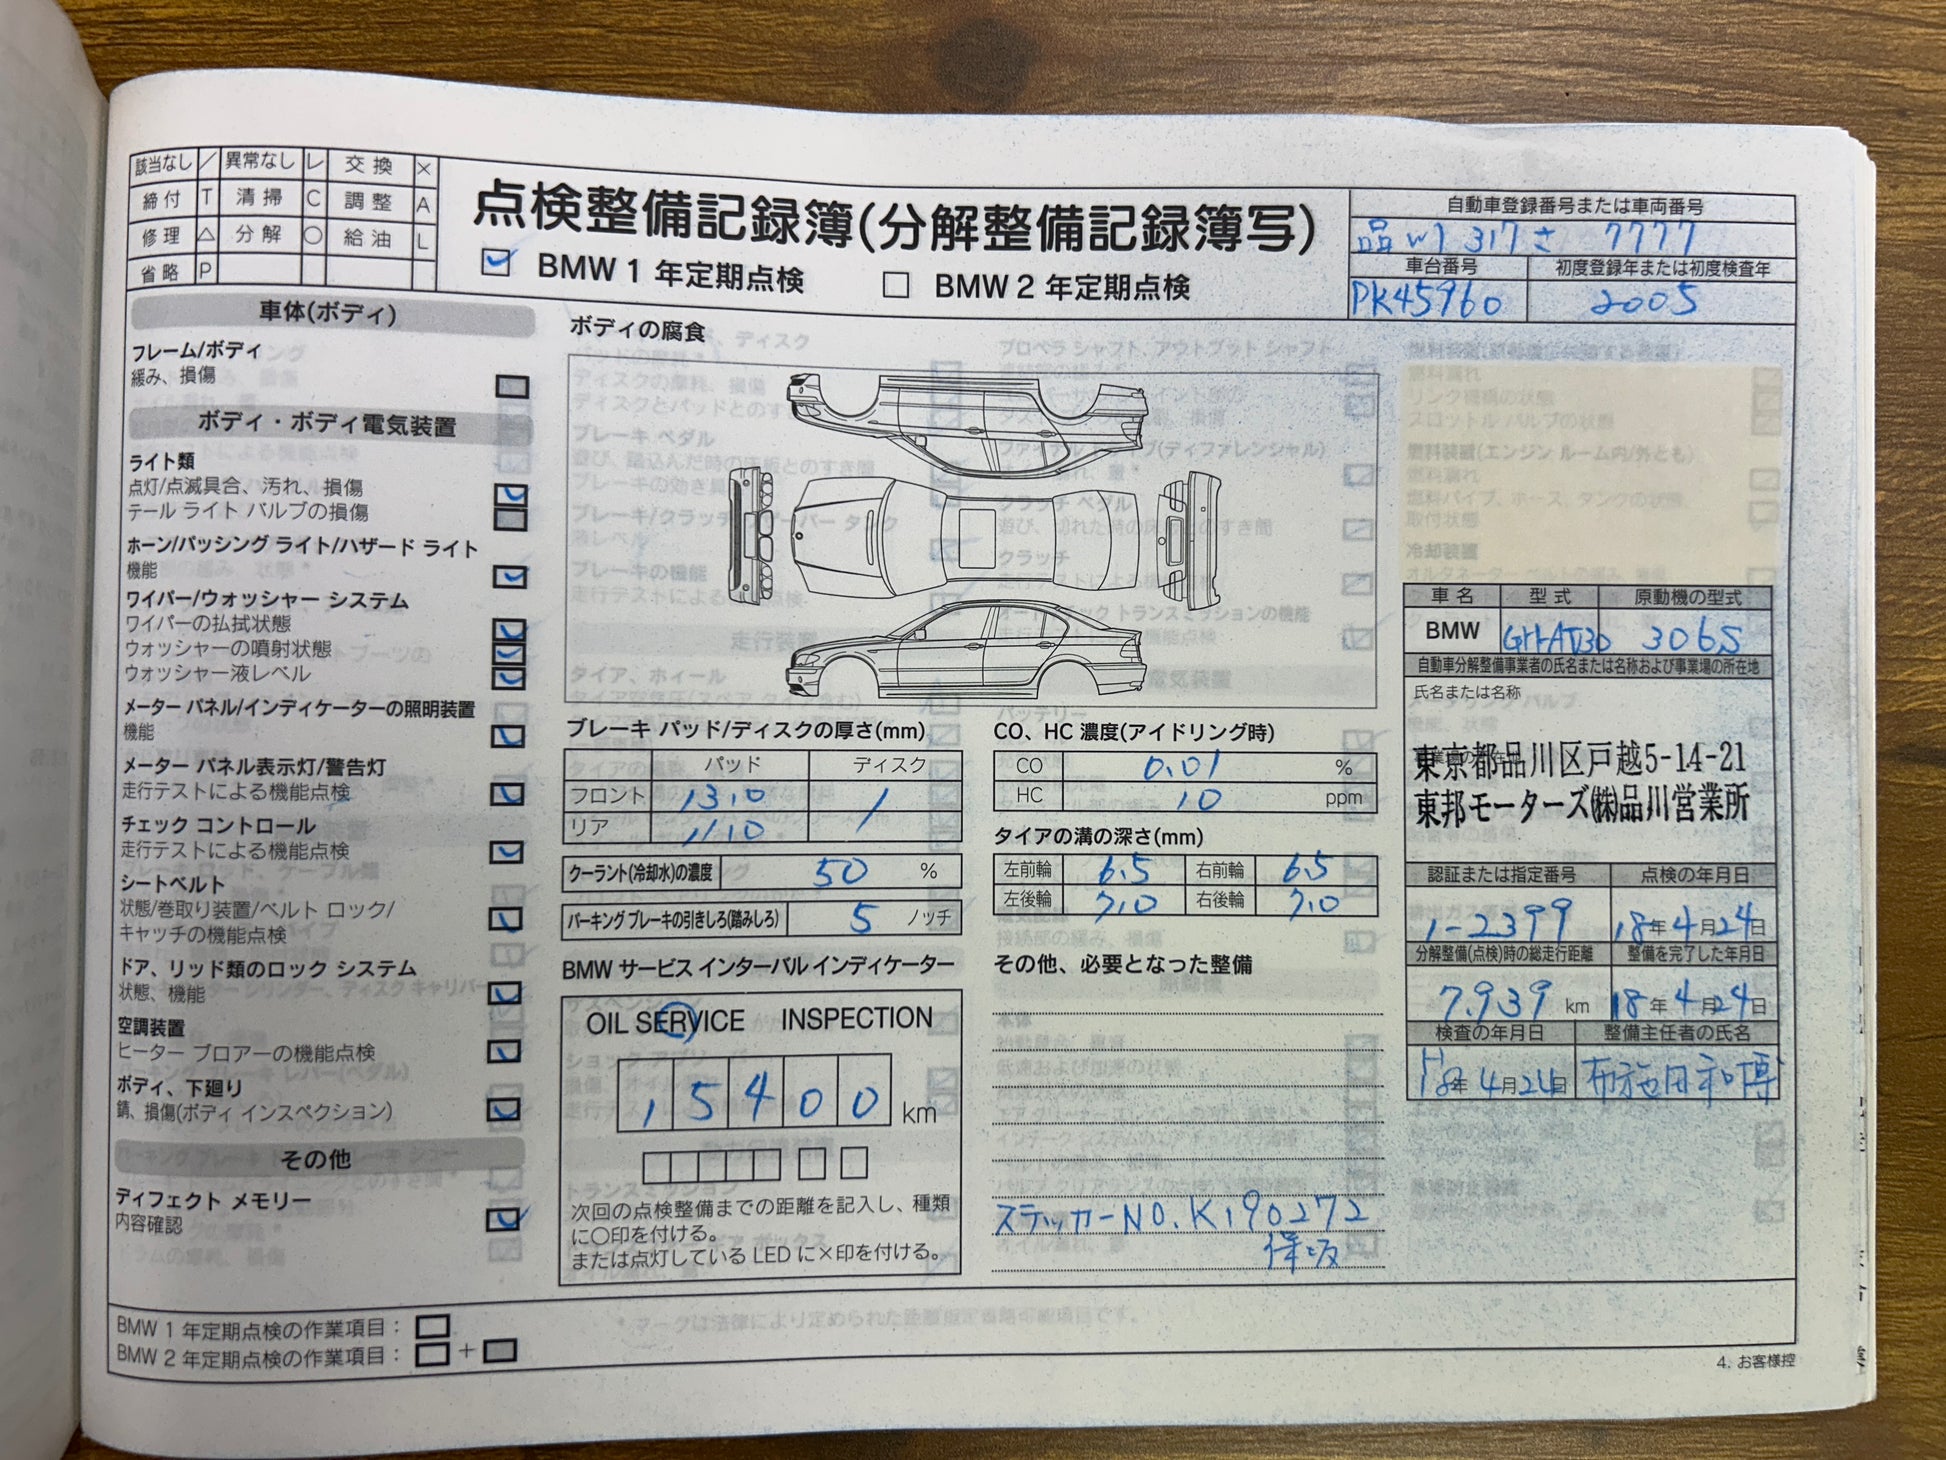 該当なし / 異常なし レ 交換 ×
締付 T 清掃 C 調整 A
修理 △ 分解 ○ 給油 L
省略 P
点検整備記録簿(分解整備記録簿写)
BMW 1 年定期点検 BMW 2 年定期点検
自動車登録番号または車両番号
317 さ 7777
車台番号 初度登録年または初度検査年
PK45960 2005
車体(ボディ)
フレーム/ボディ
緩み、損傷
ボディ・ボディ電気装置
ライト類
点灯/点滅具合、汚れ、損傷
テール ライト バルブの損傷
ホーン/パッシング ライト/ハザード ライト
機能
ワイパー/ウォッシャー システム
ワイパーの払拭状態
ウォッシャーの噴射状態
ウォッシャー液レベル
メーター パネル/インディケーターの照明装置
機能
メーター パネル表示灯/警告灯
走行テストによる機能点検
チェック コントロール
走行テストによる機能点検
シートベルト
状態/巻取り装置/ベルト ロック/
キャッチの機能点検
ドア、リッド類のロック システム
状態、機能
空調装置
ヒーター ブロアーの機能点検
ボディ、下廻り
錆、損傷(ボディ インスペクション)
その他
ディフェクト メモリー
内容確認
ボディの腐食
ブレーキ パッド/ディスクの厚さ(mm)
パッド ディスク
フロント 13.0 /
リア 11.0
クーラント(冷却水)の濃度 50 %
パーキング ブレーキの引きしろ(踏みしろ) 5 ノッチ
BMW サービス インターバル インディケーター
OIL SERVICE INSPECTION
15400 km
次回の点検整備までの距離を記入し、種類
に〇印を付ける。
または点灯している LED に×印を付ける。
CO、HC 濃度(アイドリング時)
CO 0.01 %
HC 10 ppm
タイアの溝の深さ(mm)
左前輪 6.5 右前輪 6.5
左後輪 7.0 右後輪 7.0
その他、必要となった整備
ステッカーNO.K190272
保坂
車名 型式 原動機の型式
BMW GH-AV30 306S
自動車分解整備事業者の氏名または名称および事業場の所在地
氏名または名称
東京都品川区戸越5-14-21
東邦モーターズ㈱品川営業所
認証または指定番号 点検の年月日
1-2399 18年 4月24日
分解整備(点検)時の総走行距離 整備を完了した年月日
7.939 km 18年 4月24日
検査の年月日 整備主任者の氏名
H18年 4月24日 布施田和博
BMW 1 年定期点検の作業項目：
BMW 2 年定期点検の作業項目： +
4. お客様控